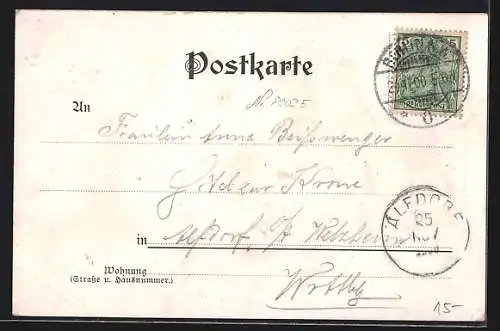 Postkarte
No 8025
An
Fräulein Anna Beißwenger
Hotel zur Krone
in Alfdorf, O/A Welzheim
Wohnung
(Straße u. Hausnummer.)
Wrttbg
ALFDORF
25
NOV
15-